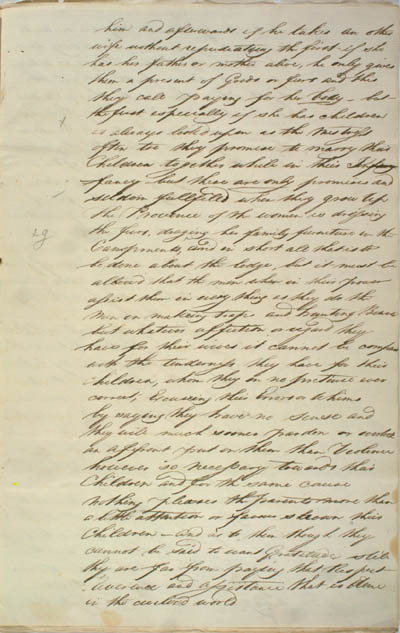 him and afterwards if he takes an other
wife without repudiating the first if she
has her father or mother alive, he only gives
them a present of Goods or furs and this
they call paying for her body – but
the first especially if she has children
is always looked upon as the Mistress
often too they promise to marry their
Children together while in their
fancy but these are only promises and
seldom fullfilled when they grow up
The Province of the women is dressing
the furs, draging her family furniture in the
Campments, and in short all that is to
be done about the lodge, but it must be
allowed that the men when in their power
assist them in every thing as they do the
Men on making traps and hunting Beaver
but whatever affection or regard they
have for their wives it cannot be compared
with the tenderness they have for their
Children, whom they on no pretence ever
correct, Excusing their Errors or whims
by saying they have no sense and
they will much sooner pardon or overlook
an affront put on them than
however is so necessary towards their
Children and for the same cause
nothing pleases the parents more than
a little attention or favour shewn their
Children – and as to them though they
cannot be said to want Gratitude still
they are far from paying that respect
reverence and assistance that is done
in the civilized world
29